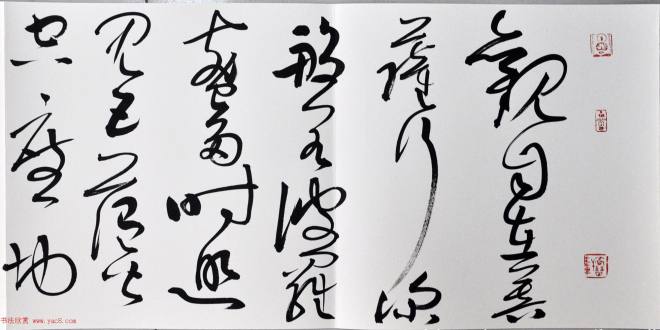 觀自在菩
薩行深
般若波羅
蜜多時照
見五蘊皆
空度一切
书法欣赏 www.yac8.com